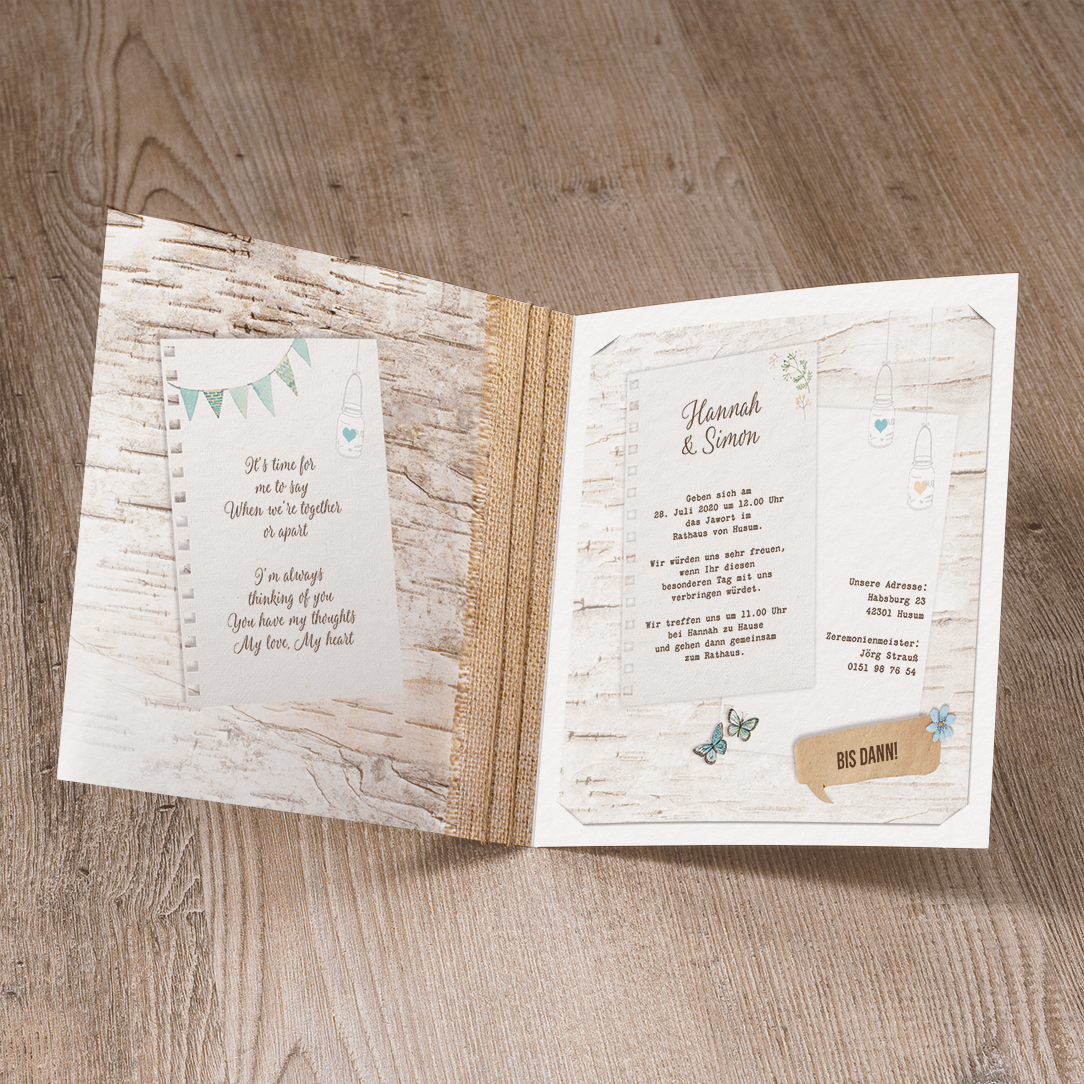 It's time for
me to say
When we're together
or apart
I'm always
thinking of you
You have my thoughts
My love, My heart
Hannah
& Simon
Geben sich am
28. Juli 2020 um 12.00 Uhr
das Jawort im
Rathaus von Husum.
Wir würden uns sehr freuen,
wenn Ihr diesen
besonderen Tag mit uns
verbringen würdet.
Wir treffen uns um 11.00 Uhr
bei Hannah zu Hause
und gehen dann gemeinsam
zum Rathaus.
Unsere Adresse:
Habsburg 23
42301 Husum
Zeremonienmeister:
Jörg Strauß
0151 98 76 54
BIS DANN!